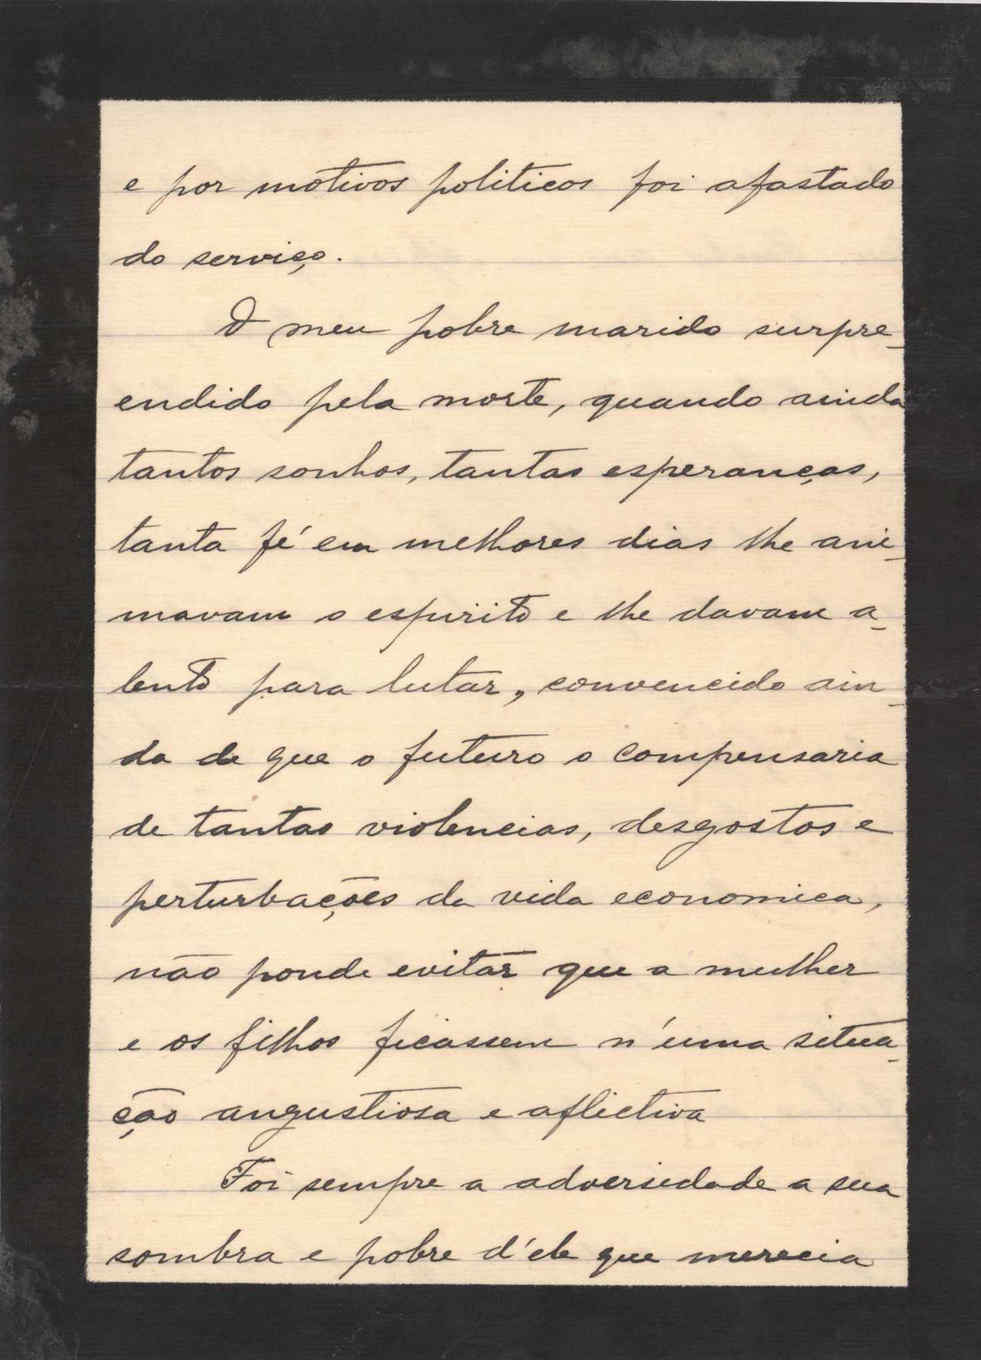 e por motivos politicos foi afastado
do serviço.
O meu pobre marido surpre-
endido pela morte, quando ainda
tantos sonhos, tantas esperanças,
tanta fé em melhores dias lhe ani-
mavam o espirito e lhe davam a-
lento para lutar, convencido ain-
da de que o futuro o compensaria
de tantas violencias, desgostos e
perturbações da vida economica,
não poude evitar que a mulher
e os filhos ficassem n'uma situa-
ção angustiosa e aflictiva
Foi sempre a adversidade a sua
sombra e pobre d'ele que merecia